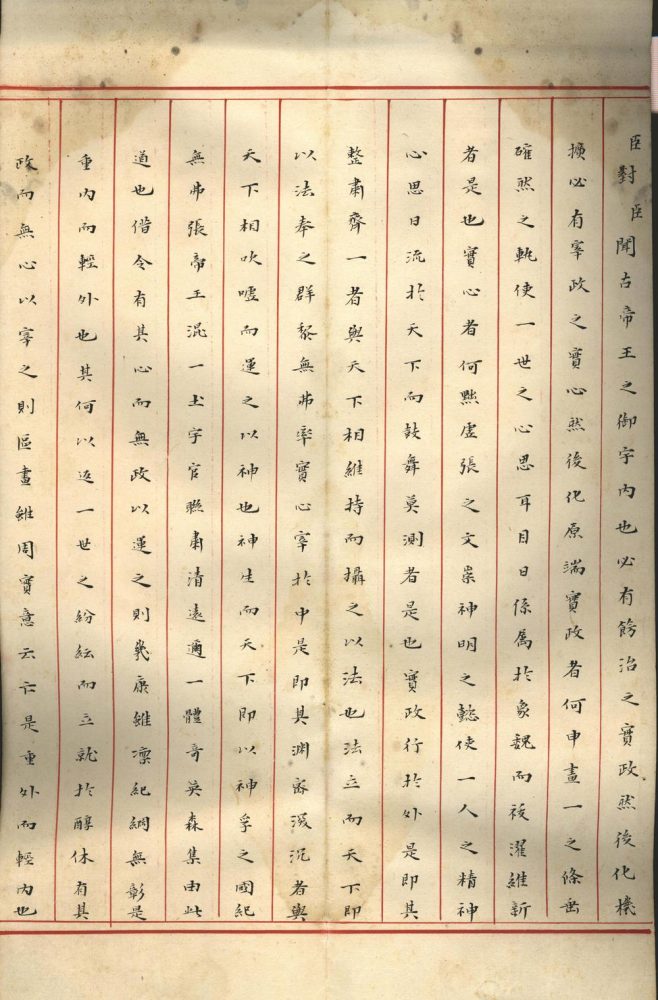 臣對臣聞古帝王之御宇內也必有飭治之實政然後化機
擴必有宰政之實心然後化原端實政者何申畫一之條垂
確然之軌使一世之心思耳目日係屬於象魏而祓濯維新
者是也實心者何黜虛張之文崇神明之懿使一人之精神
心思日流於天下而鼓舞莫測者是也實政行於外是即其
整肅齊一者與天下相維持而攝之以法也法立而天下即
以法奉之群黎無弗率實心宰於中是即其淵密淑沉者與
天下相吹噓而運之以神也神生而天下即以神孚之國紀
無弗張帝王混一土宇官聯肅清遠邇一體奇英森集由此
道也借令有其心而無政以運之則幾康雖凜紀綱無彰是
重內而輕外也其何以返一世之紛紜而立就於醇休有其
政而無心以宰之則區畫雖周實意云亡是重外而輕內也